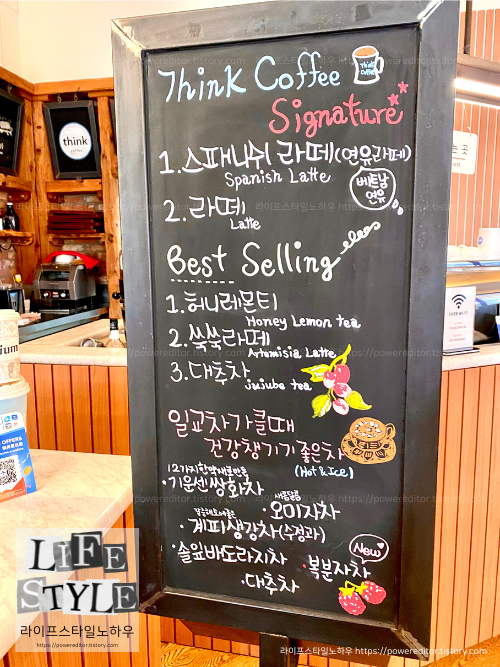 Think Coffee
Think
Coffee
Signature
1.스패니쉬 라떼(연유라떼)
Spanish Latte
베트남
연유
2. 라떼
Latte
Best Selling
1.허니레몬티
Honey Lemon tea
2.쑥쑥라떼
Artemisia Latte
3.대추차
jujube tea
일교차가클때
건강챙기기 좋은차
(Hot & Ice)
12가지한약재로만든
·기운센쌍화차
새콤달콤
·오미자차
·계피생강차(수정과)
·솔잎배도라지차
New
·복분자차
·대추차
think
coffee
FREE Wi-Fi
는 곳
ium
LIFE
STYLE
라이프스타일노하우
https://powereditor.tistory.com
라이프스타일노하우 https://powereditor.tistory.com